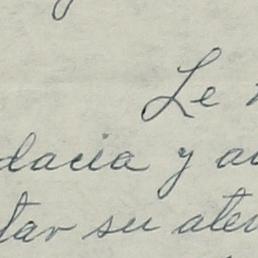 Le
dacia y au
tar su aten